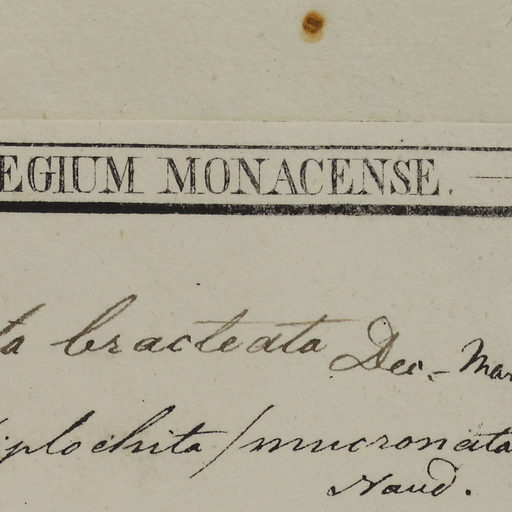 EGIUM MONACENSE.
ta bracteata Dec. - Mar
iplochita / mucronata
Naud.